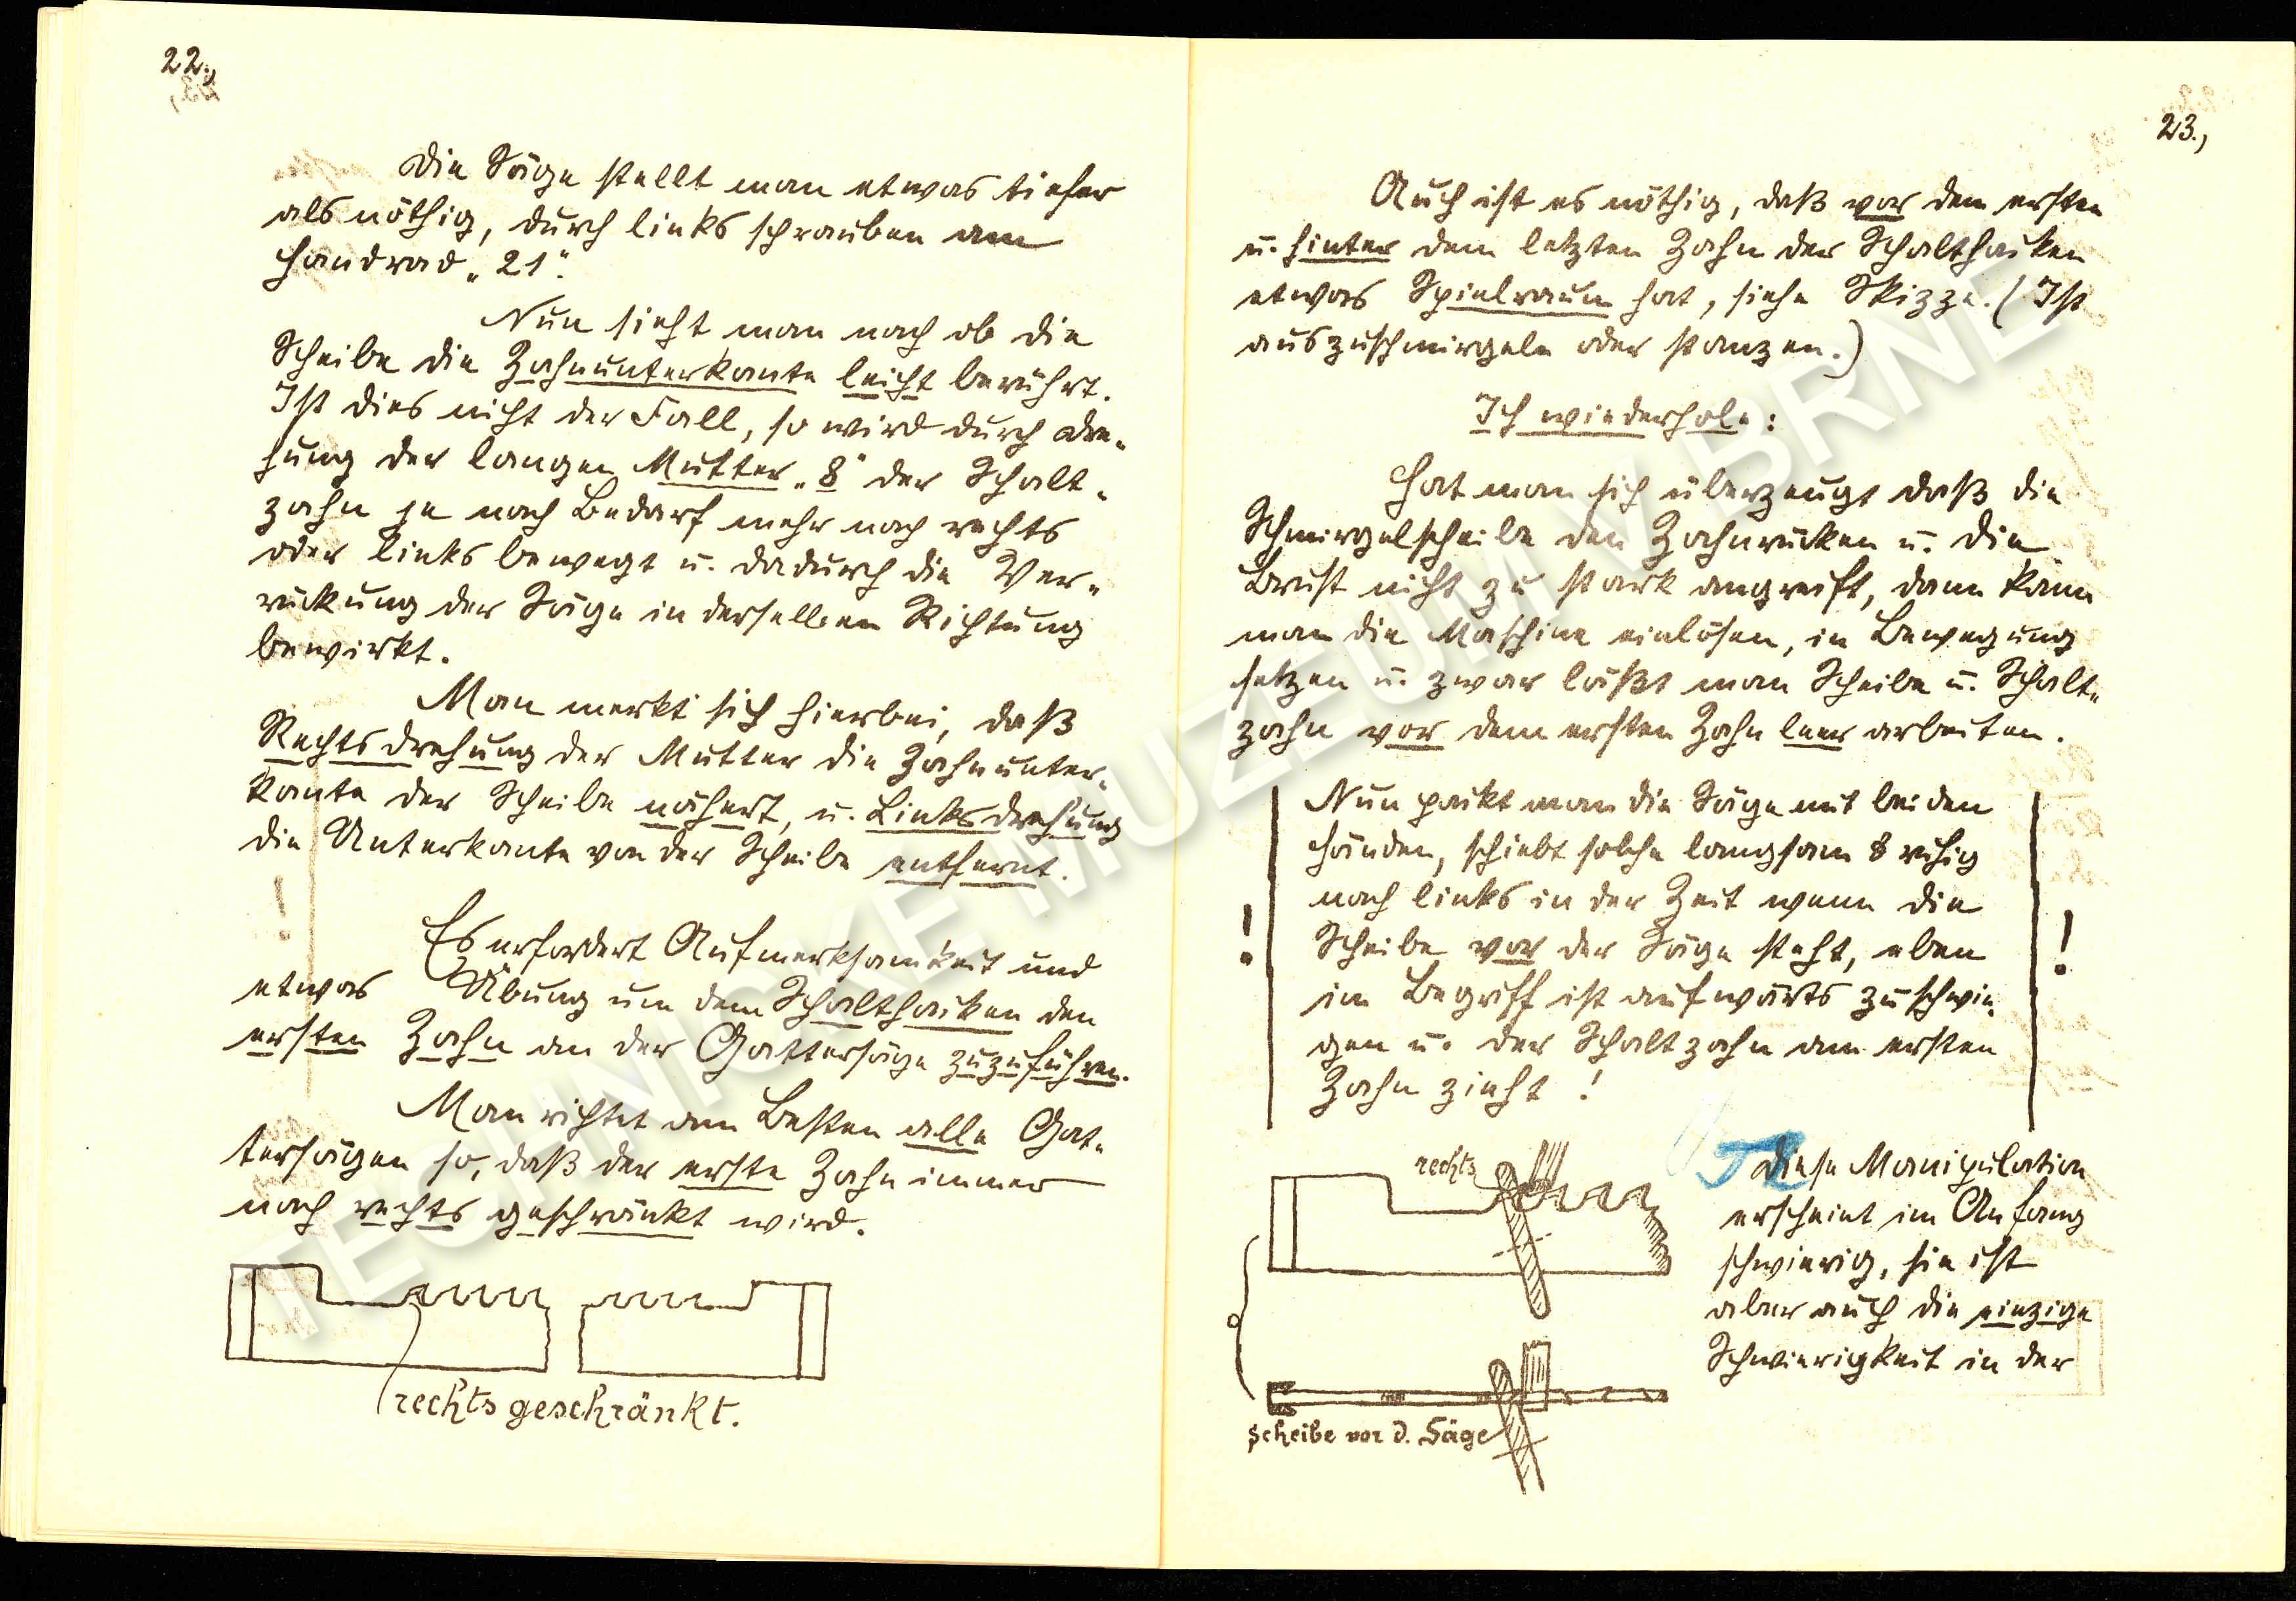 22.,
Die Säge stellt man etwas tiefer
als nöthig, durch links schrauben am
Handrad „21“.
Nun sieht man nach ob die
Scheibe die Zahnunterkante leicht berührt.
Ist dies nicht der Fall, so wird durch Dre-
hung der langen Mutter „8“ der Schalt-
zahn je nach Bedarf mehr nach rechts
oder links bewegt u. dadurch die Ver-
rückung der Säge in derselben Richtung
bewirkt.
Man merkt sich hierbei, daß
Rechtsdrehung der Mutter die Zahnunter-
kante der Scheibe nähert, u. Linksdrehung
die Unterkante von der Scheibe entfernt.
Es erfordert Aufmerksamkeit und
etwas Übung um dem Schalthaken den
ersten Zahn an der Gattersäge zuzuführen.
Man richtet am Besten alle Gat-
tersägen so, daß der erste Zahn immer
nach rechts geschränkt wird.
rechts geschränkt.
23.,
Auch ist es nöthig, daß vor dem ersten
u. hinter dem letzten Zahn der Schalthaken
etwas Spielraum hat, siehe Skizze. (Ist
auszuschmirgeln oder stanzen.)
Ich wiederhole:
Hat man sich überzeugt daß die
Schmirgelscheibe den Zahnrücken u. die
Brust nicht zu stark angreift, dann kann
man die Maschine einlösen, in Bewegung
setzen u. zwar läßt man Scheibe u. Schalt-
zahn vor dem ersten Zahn leer arbeiten.
Nun packt man die Säge mit beiden
Händen, schiebt solche langsam & ruhig
nach links in der Zeit wenn die
Scheibe vor der Säge steht, eben
! im Begriff ist aufwärts zu schwin- !
gen u. der Schaltzahn am ersten
Zahn zieht !
rechts
Diese Manipulation
erscheint im Anfang
schwierig, sie ist
aber auch die einzige
Schwierigkeit in der
Scheibe vor d. Säge
TECHNICKÉ MUZEUM V BRNĚ